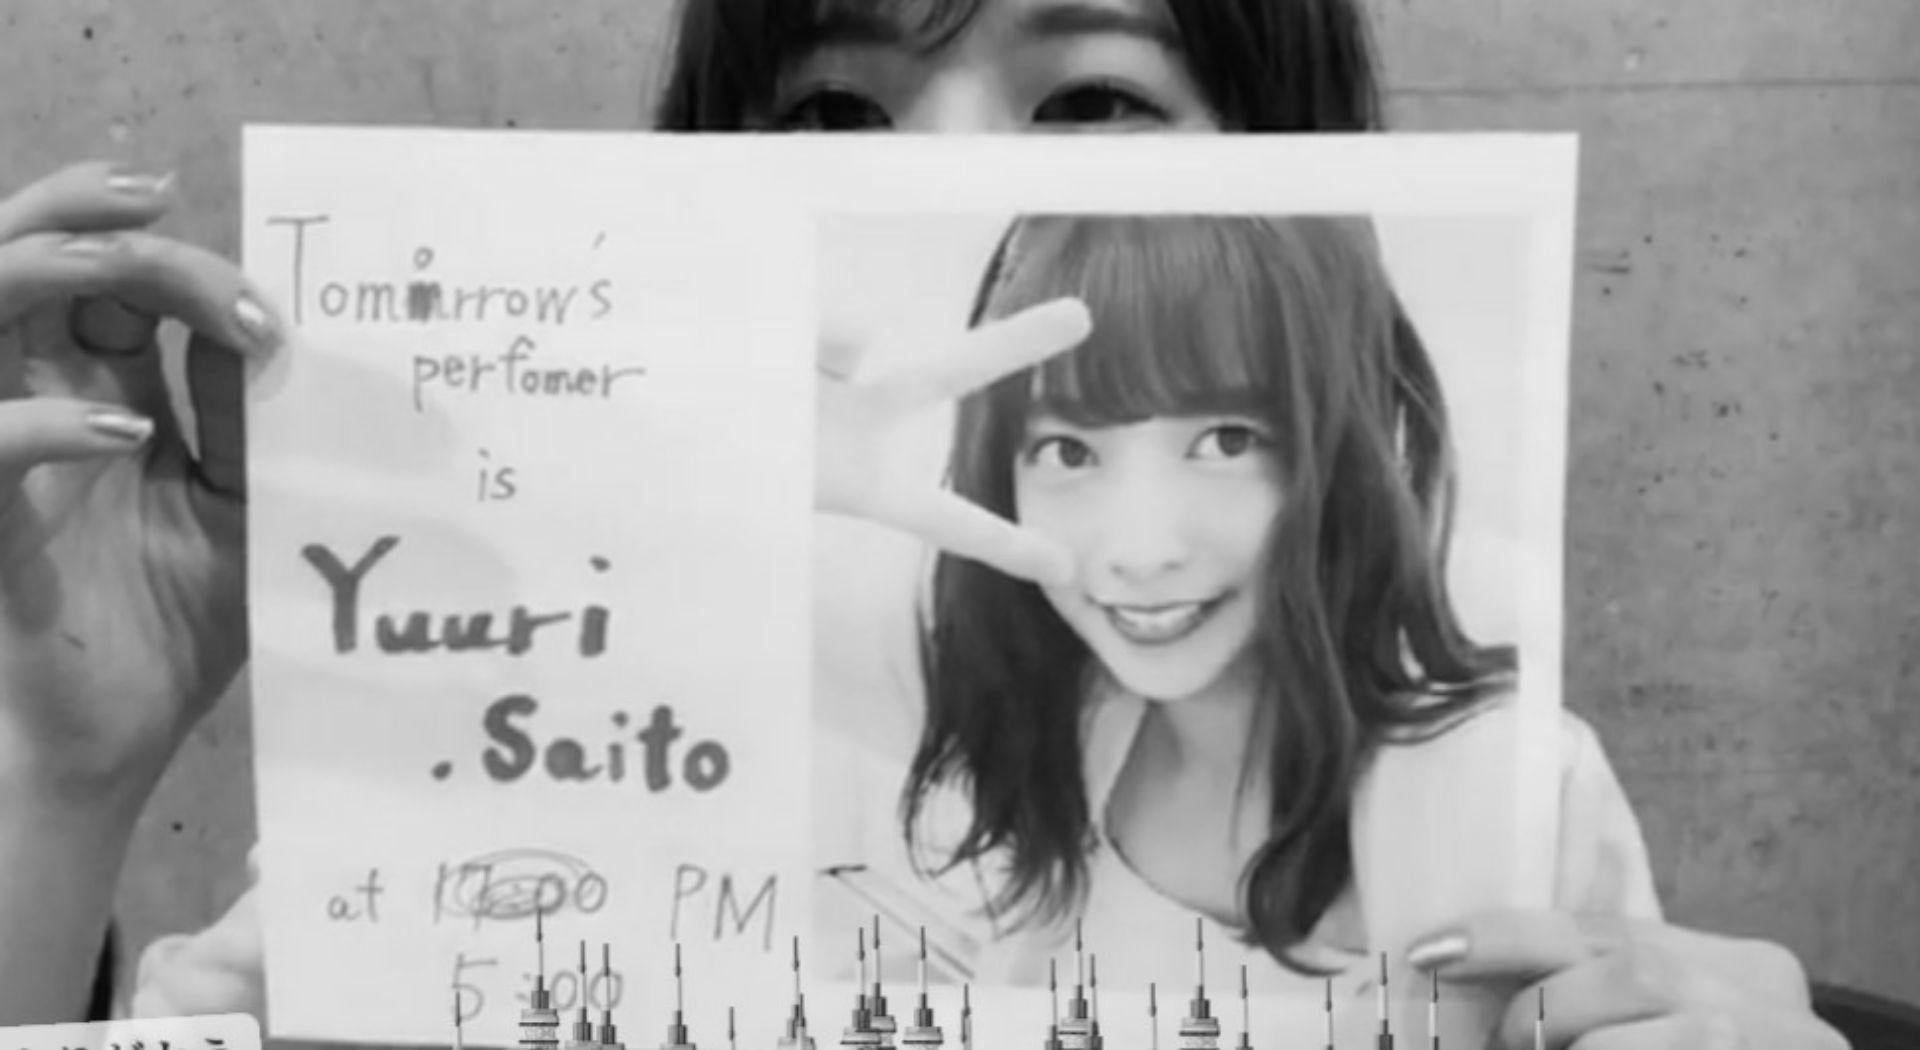 Tomorrow's
perfomer
is
Yuuri
.Saito
at 17:00 PM
5:00